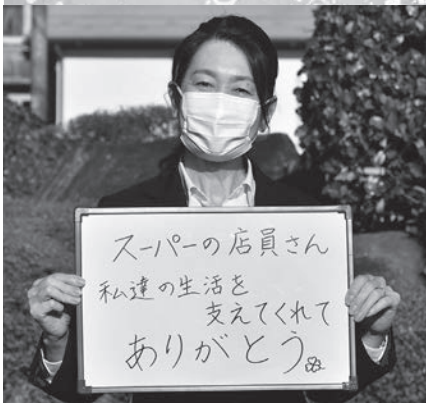 スーパーの店員さん
私達の生活を
支えてくれて
ありがとう